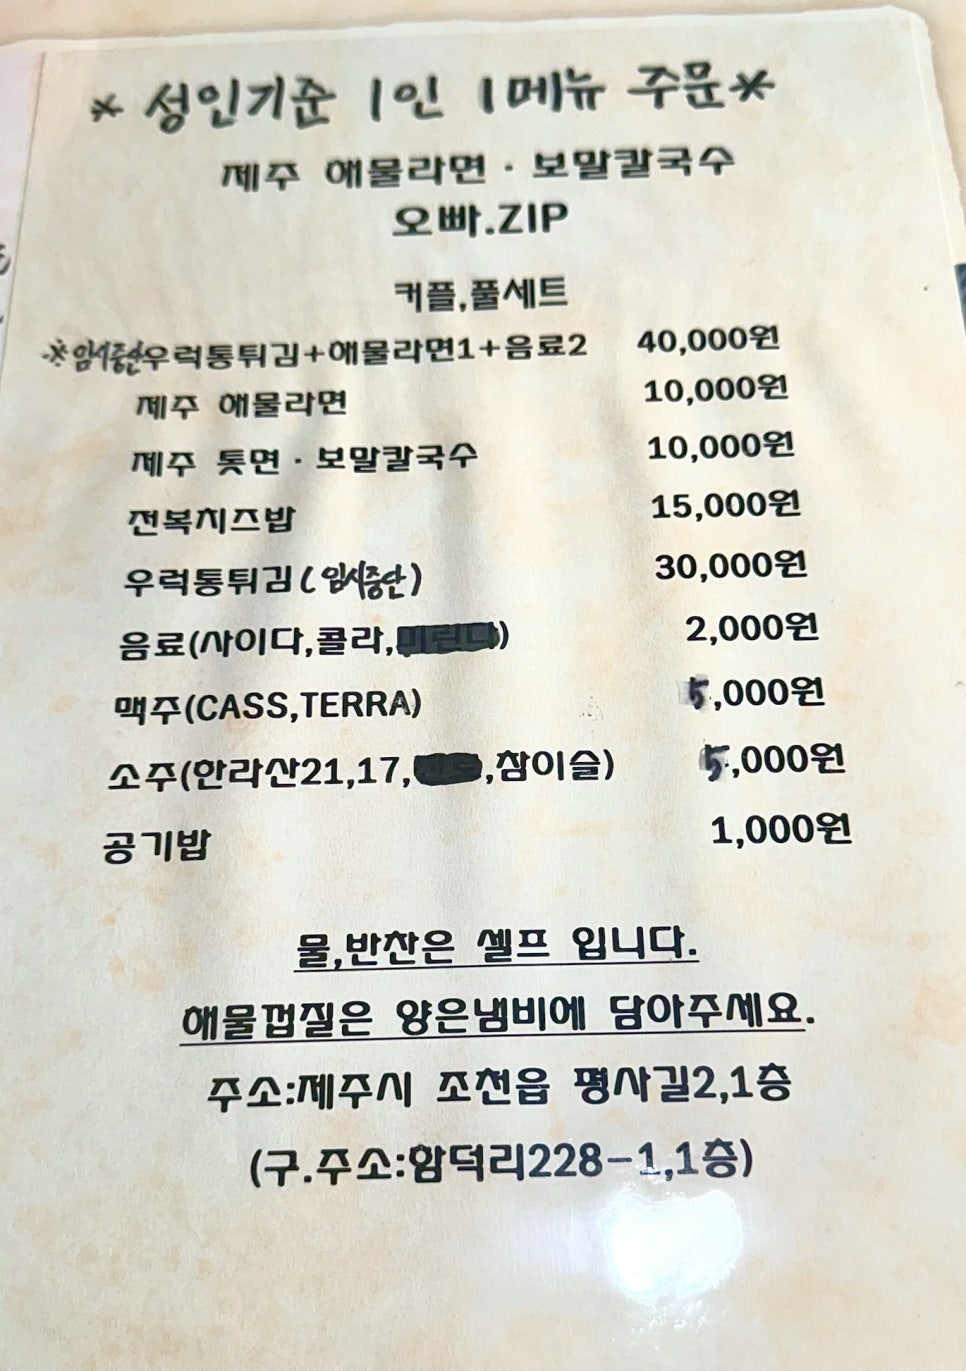 *성인기준 1인 1메뉴 주문*
제주 해물라면·보말칼국수
오빠.ZIP
커플,풀세트
※임시중단우럭통튀김+해물라면1+음료2 40,000원
제주 해물라면 10,000원
제주 톳면·보말칼국수 10,000원
전복치즈밥 15,000원
우럭통튀김(임시중단) 30,000원
음료(사이다,콜라,미린다) 2,000원
맥주(CASS,TERRA) 5,000원
소주(한라산21,17,,참이슬) 5,000원
공기밥 1,000원
물,반찬은 셀프 입니다.
해물껍질은 양은냄비에 담아주세요.
주소:제주시 조천읍 평사길2,1층
(구.주소:함덕리228-1,1층)